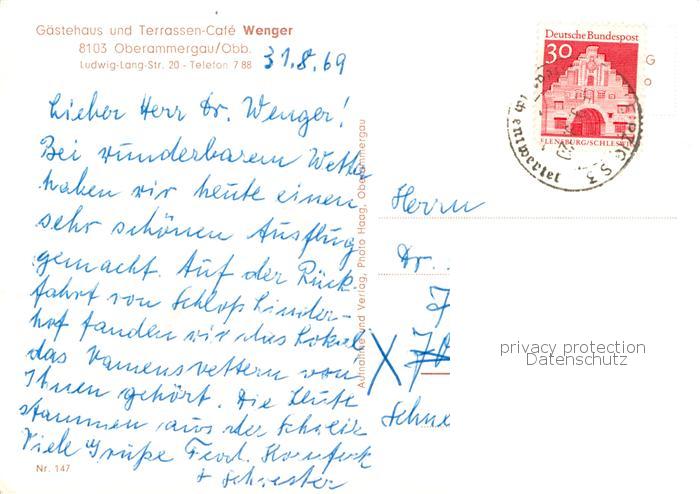 Gästehaus und Terrassen-Café Wenger
8103 Oberammergau/Obb.
Ludwig-Lang-Str. 20 - Telefon 7 88
31.8.69
Lieber Herr Dr. Wenger!
Bei wunderbarem Wetter
haben wir heute einen
sehr schönen Ausflug
gemacht. Auf der Rück-
fahrt von Schloß Linder-
hof fanden wir das Lokal
das Namensvettern von
Ihnen gehört. Die Leute
stammen aus der Schweiz
Viele Grüße Ferd.
+ Schwester
Nr. 147
Aufnahme und Verlag, Photo Haag, Oberammergau
Deutsche Bundespost
30
FLENSBURG/SCHLESWIG
Herrn
Dr.
privacy protection
Datenschutz